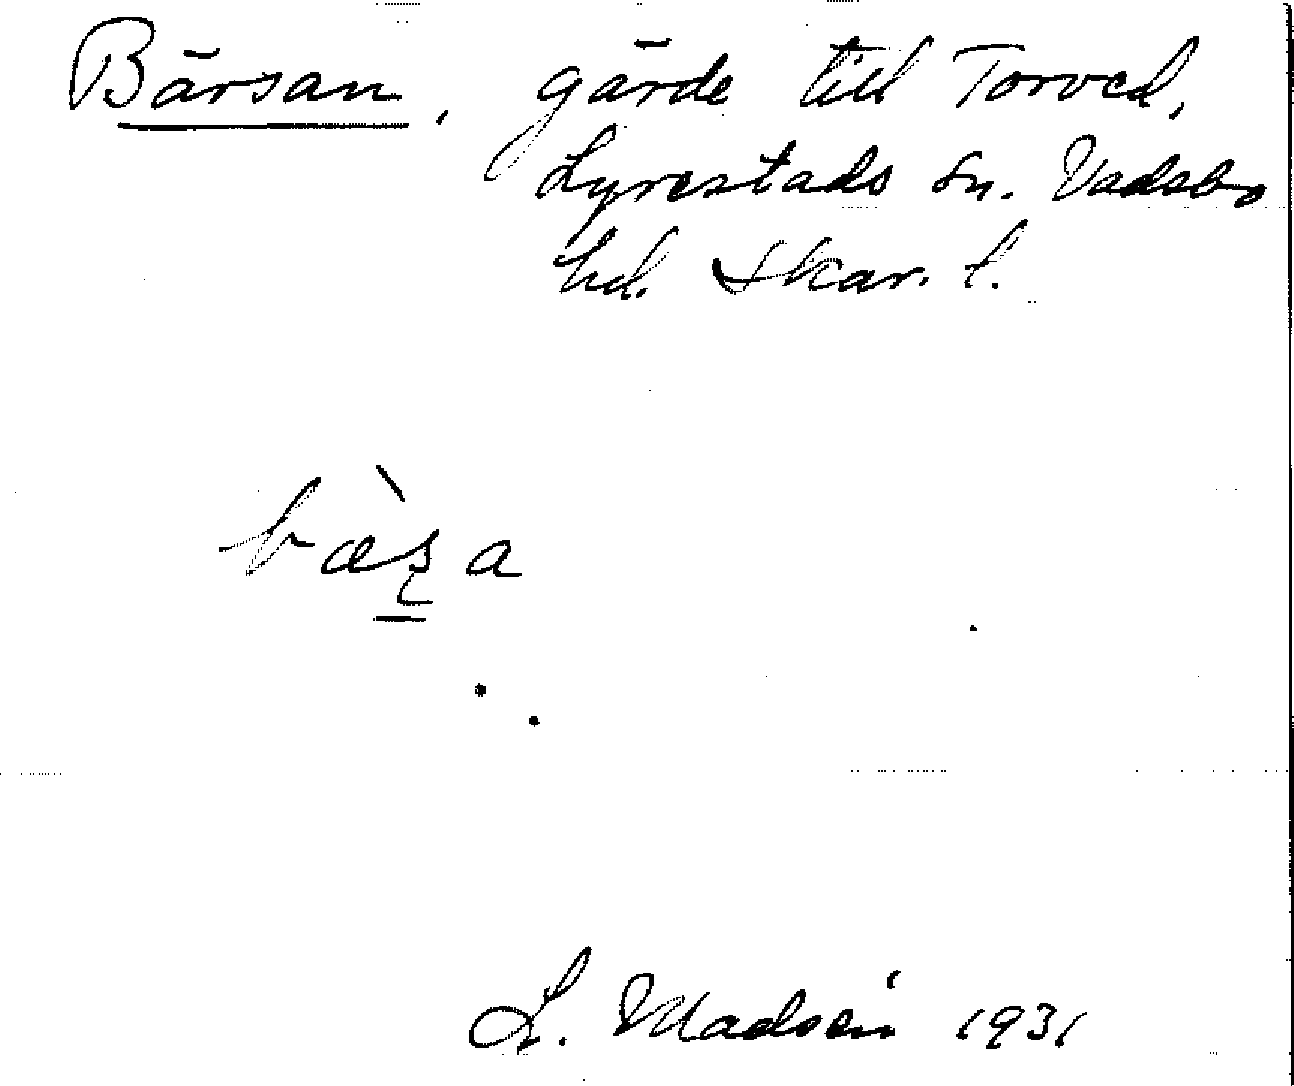 Bärsan, gärde till Torved,
Lyrestads sn. Vadsbo
hd. Skar. l.
bæ̀ʂa
L. Madsén 1931